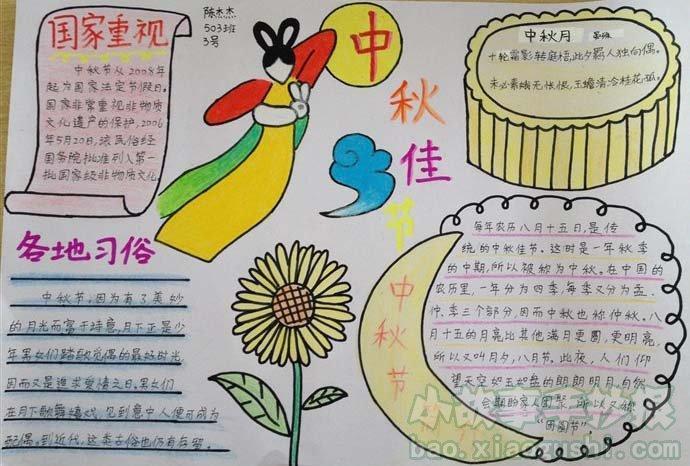 国家重视
中秋节从2008年
起为国家法定节假日。
国家非常重视非物质
文化遗产的保护，2006
年5月20日，该民俗经
国务院批准列入第一
批国家级非物质文化
陈杰杰
503班
3号
中
秋
佳
节
中秋节
中秋月
十轮霜影转庭梧，此夕羁人独向偶。
未必素娥无怅恨，玉蟾清冷桂花孤。
各地习俗
中秋节，因为有了美妙
的月光而富于诗意，月下正是少
年男女们踏歌觅偶的最好时光，
因而又是追求爱情之日，男女们
在月下歌舞嬉戏，见到意中人便可成为
配偶。到近代，这类古俗也仍有存留
每年农历八月十五日，是传
统的中秋佳节。这时是一年秋季
的中期，所以被称为中秋。在中国的
农历里，一年分为四季，每季又分为孟、
仲、季三个部分，因而中秋也称仲秋。八
月十五的月亮比其他满月更圆，更明亮，
所以又叫月夕，八月节。此夜，人们仰
望天空如玉如盘的朗朗明月，自然
会期盼家人团聚，所以又称
“团圆节”。
bao.xiaogushi.com